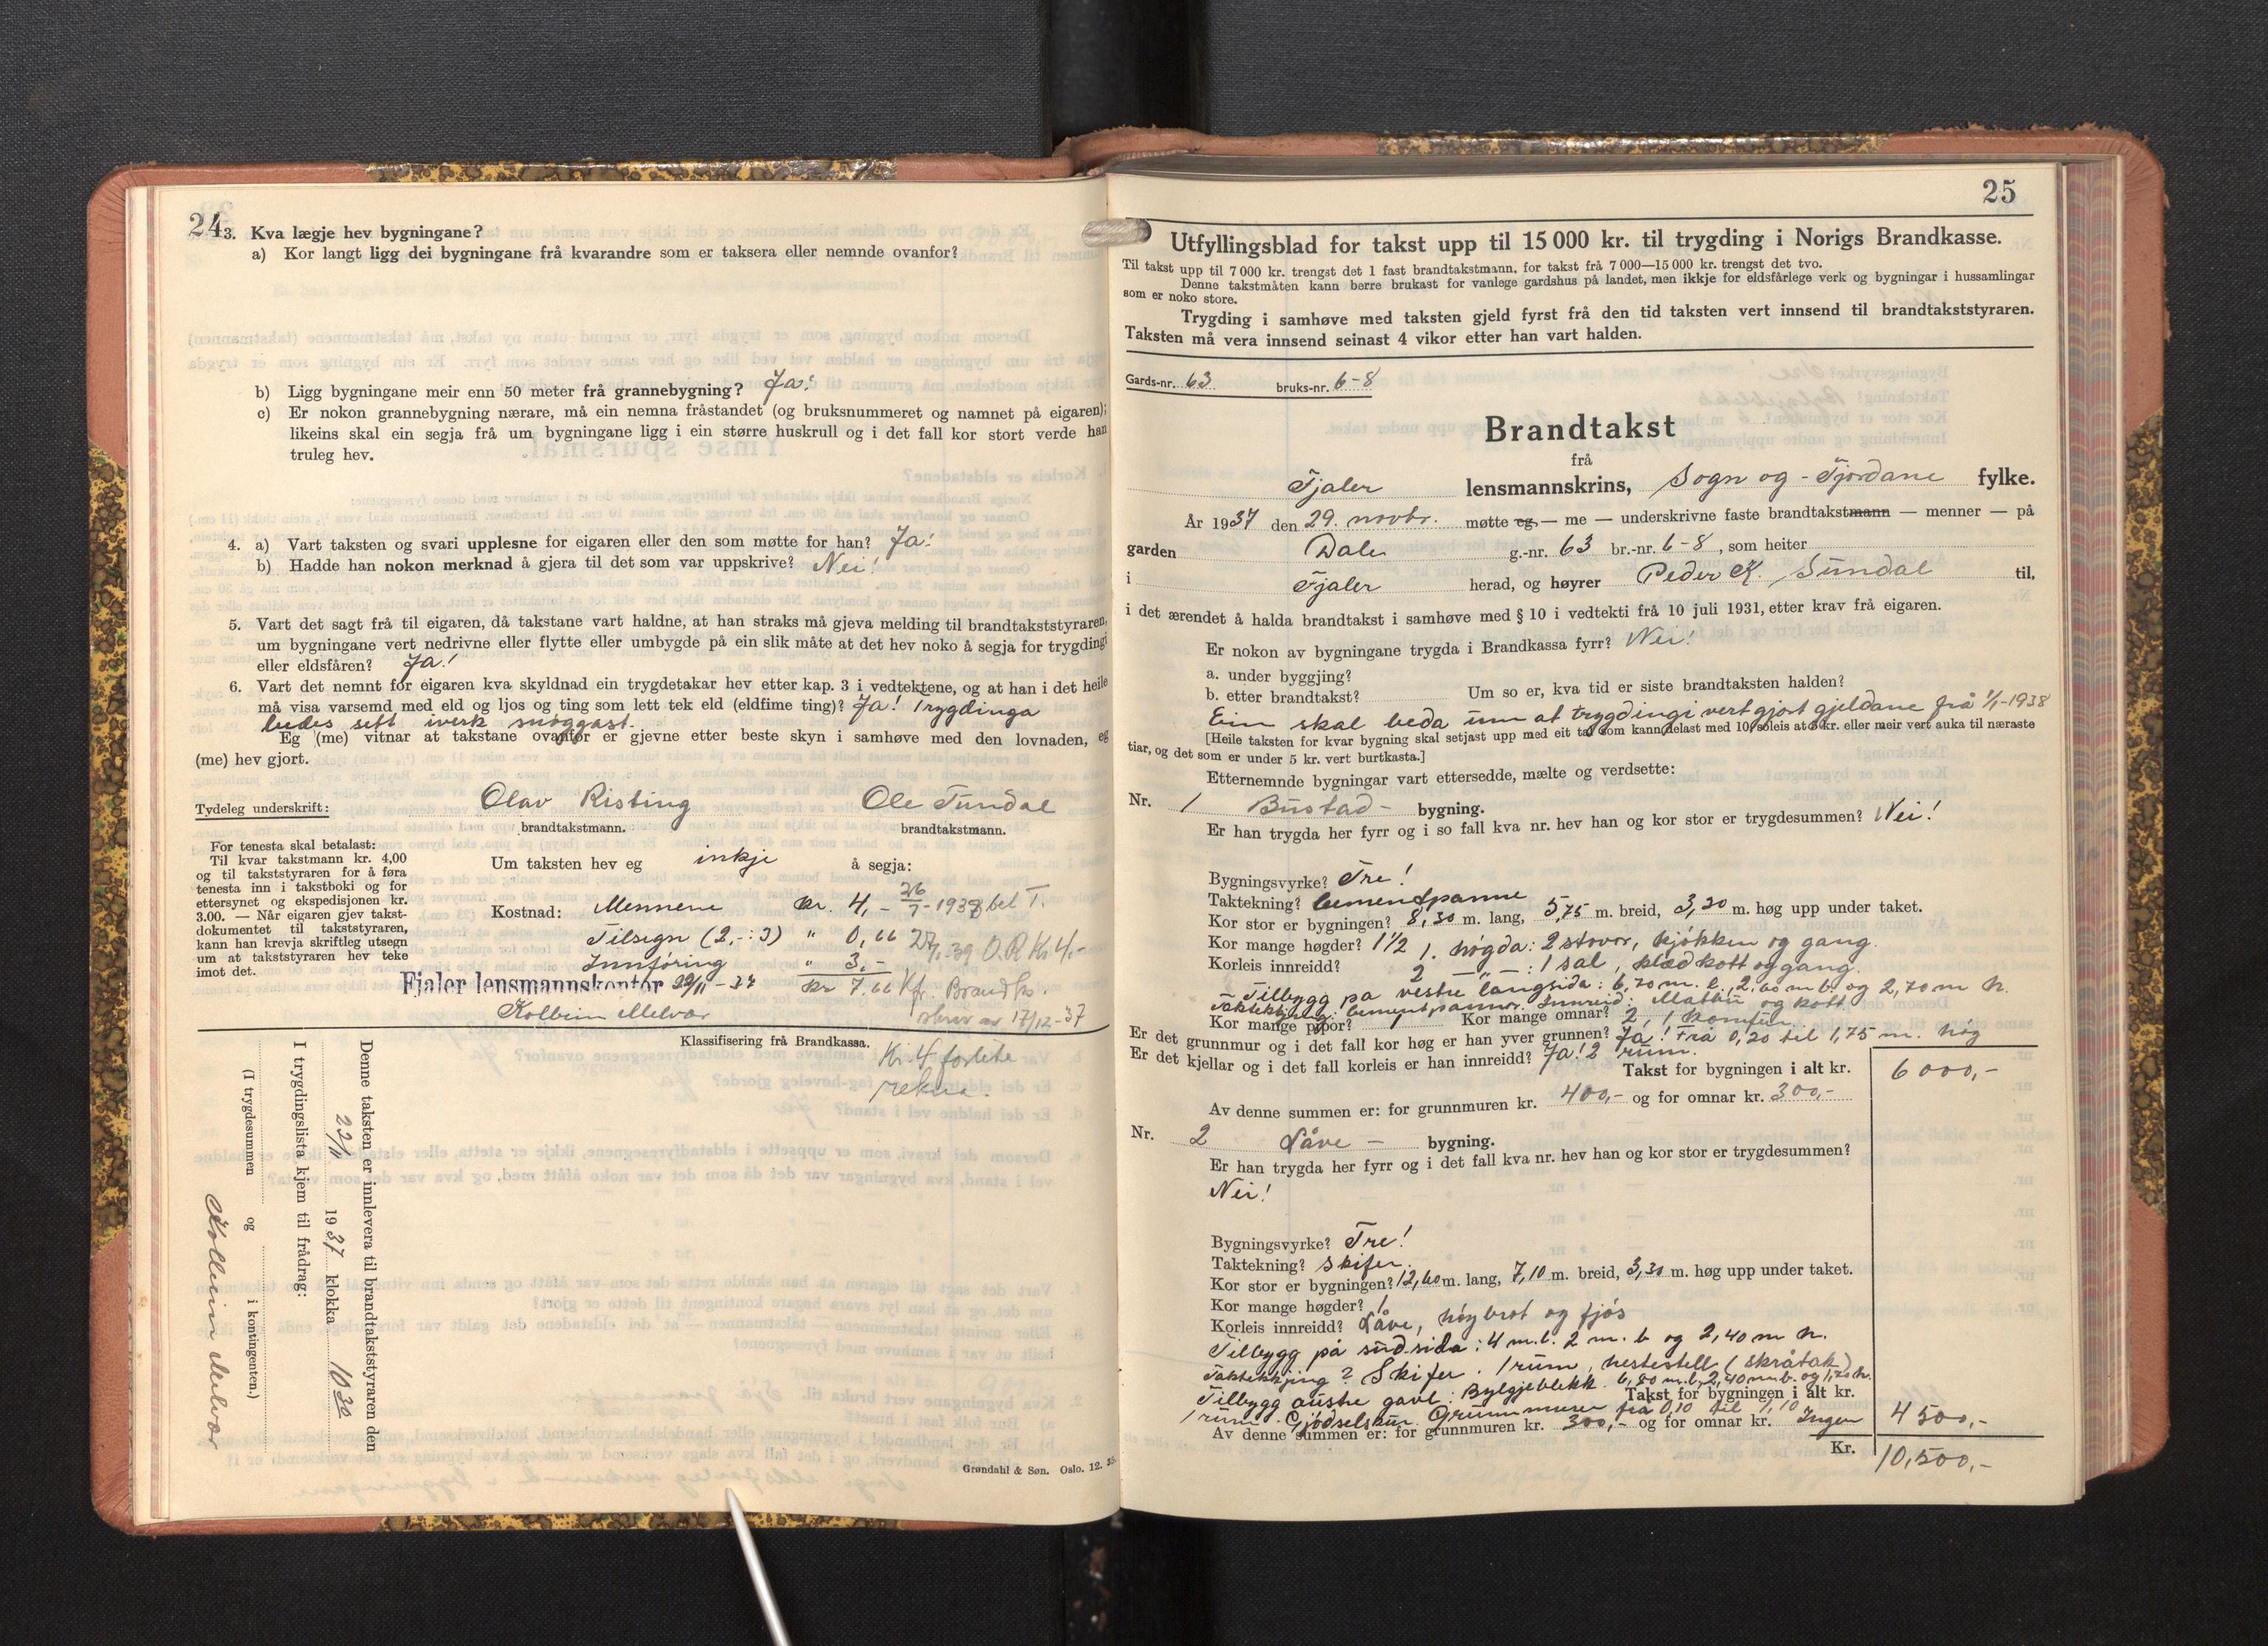 24
3. Kva lægje hev bygningane?
a) Kor langt ligg dei bygningane frå kvarandre som er taksera eller nemnde ovanfor?
b) Ligg bygningane meir enn 50 meter frå grannebygning? Ja!
c) Er nokon grannebygning nærare, må ein nemna fråstandet (og bruksnummeret og namnet på eigaren);
likeins skal ein segja frå um bygningane ligg i ein større huskrull og i det fall kor stort verde han
truleg hev.
4. a) Vart taksten og svari upplesne for eigaren eller den som møtte for han? Ja!
b) Hadde han nokon merknad å gjera til det som var uppskrive? Nei!
5. Vart det sagt frå til eigaren, då takstane vart haldne, at han straks må gjeva melding til brandtakststyraren,
um bygningane vert nedrivne eller flytte eller umbygde på ein slik måte at det hev noko å segja for trygdingi
eller eldsfåren? Ja!
6. Vart det nemnt for eigaren kva skyldnad ein trygdetakar hev etter kap. 3 i vedtektene, og at han i det heile
må visa varsemd med eld og ljos og ting som lett tek eld (eldfime ting)? Ja! Trygdinga
bedes sett iverk snøggast.
Eg (me) vitnar at takstane ovanfor er gjevne etter beste skyn i samhøve med den lovnaden, eg
(me) hev gjort.
Tydeleg underskrift: Olav Risting Ole Tundal
brandtakstmann. brandtakstmann.
For tenesta skal betalast:
Til kvar takstmann kr. 4,00
og til takststyraren for å føra
tenesta inn i takstboki og for
ettersynet og ekspedisjonen kr.
3.00. — Når eigaren gjev takst-
dokumentet til takststyraren,
kann han krevja skriftleg utsegn
um at takststyraren hev teke
imot det.
Um taksten hev eg inkje å segja:
Kostnad: Mennene kr. 4,- 26/7-1938 bet T.
Tilsegn (2,-:3) " 0,66 27/1 39 O.R Kr 4,-
Innføring " 3,-
Fjaler lensmannskontor 22/11-37 kr 7,66 Kfr. Brandk.
Kolbein Melvær skriv av 17/12-37
Klassifisering frå Brandkassa.
Kr. 4 forlite
rekna.
Denne taksten er innlevera til brandtakststyraren den
22/11 1937 klokka 10 30
I trygdingslista kjem til frådrag:
(I trygdesummen og i kontingenten.)
Kolbein Melvær
Grøndahl & Søn. Oslo. 12. 35.
25
Utfyllingsblad for takst upp til 15 000 kr. til trygding i Norigs Brandkasse.
Til takst upp til 7 000 kr. trengst det 1 fast brandtakstmann, for takst frå 7 000—15 000 kr. trengst det tvo.
Denne takstmåten kann berre brukast for vanlege gardshus på landet, men ikkje for eldsfårlege verk og bygningar i hussamlingar
som er noko store.
Trygding i samhøve med taksten gjeld fyrst frå den tid taksten vert innsend til brandtakststyraren.
Taksten må vera innsend seinast 4 vikor etter han vart halden.
Gards-nr. 63 bruks-nr. 6-8
Brandtakst
frå
Fjaler lensmannskrins, Sogn og - Fjordane fylke.
År 1937 den 29. novbr. møtte eg — me — underskrivne faste brandtakstmann — menner — på
garden Dale g.-nr. 63 br.-nr. 6-8, som heiter
i Fjaler herad, og høyrer Peder K. Sundal til,
i det ærendet å halda brandtakst i samhøve med § 10 i vedtekti frå 10 juli 1931, etter krav frå eigaren.
Er nokon av bygningane trygda i Brandkassa fyrr? Nei!
a. under byggjing?
b. etter brandtakst? Um so er, kva tid er siste brandtaksten halden?
Ein skal beda um at trygdingi vert gjort gjeldane frå 1/1-1938
[Heile taksten for kvar bygning skal setjast upp med eit tal som kann delast med 10, soleis at 5 kr. eller meir vert auka til næraste
tiar, og det som er under 5 kr. vert burtkasta.]
Etternemnde bygningar vart ettersedde, mælte og verdsette:
Nr. 1 Bustad - bygning.
Er han trygda her fyrr og i so fall kva nr. hev han og kor stor er trygdesummen? Nei!
Bygningsvyrke? Tre!
Taktekning? Cementpanne
Kor stor er bygningen? 8,30 m. lang, 5,75 m. breid, 3,20 m. høg upp under taket.
Kor mange høgder? 1 1/2 1. høgda: 2 stovor, kjøkken og gang.
Korleis innreidd? 2 — " — : 1 sal, klædkott og gang.
Tilbygg på vestre langsida: 6,70 m. l., 2.60 m b. og 2,70 m h.
Taktekkjing: Cementpannor. Innreid: Matbu og kott.
Kor mange pipor? 1 Kor mange omnar? 2, 1 komfyr
Er det grunnmur og i det fall kor høg er han yver grunnen? Ja! Frå 0,20 til 1,75 m. høg
Er det kjellar og i det fall korleis er han innreidd? Ja! 2 rum.
Takst for bygningen i alt kr. 6000,-
Av denne summen er: for grunnmuren kr. 400,- og for omnar kr. 300,-
Nr. 2 Låve - bygning.
Er han trygda her fyrr og i det fall kva nr. hev han og kor stor er trygdesummen?
Nei!
Bygningsvyrke? Tre!
Taktekning? Skifer.
Kor stor er bygningen? 12,60 m. lang, 7,10 m. breid, 3,30 m. høg upp under taket.
Kor mange høgder? 1
Korleis innreidd? Låve, høybrot og fjøs
Tilbygg på sud-sida: 4 m. l. 2 m. b og 2,40 m h.
Taktekkjing? Skifer. 1 rum, hestestell (skråtak)
Tilbygg austre gavl: Bylgjeblekk. 6,80 m. l, 2,40 m b. og 1,70 h.
Takst for bygningen i alt kr. 4500,-
1 rum. Gjødselskur. Grunnmuren frå 0,10 til 1,10
Av denne summen er: for grunnmuren kr. 300,- og for omnar kr. Ingen
Kr. 10,500,-